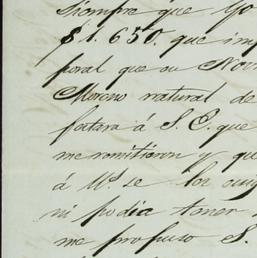 siempre que yo
$1.650. que imp
poral que su Nov
Moreno natural de
faltara á S. E. que
me remitieron y que
á Us. se los
ni podia tener
me profuso S.